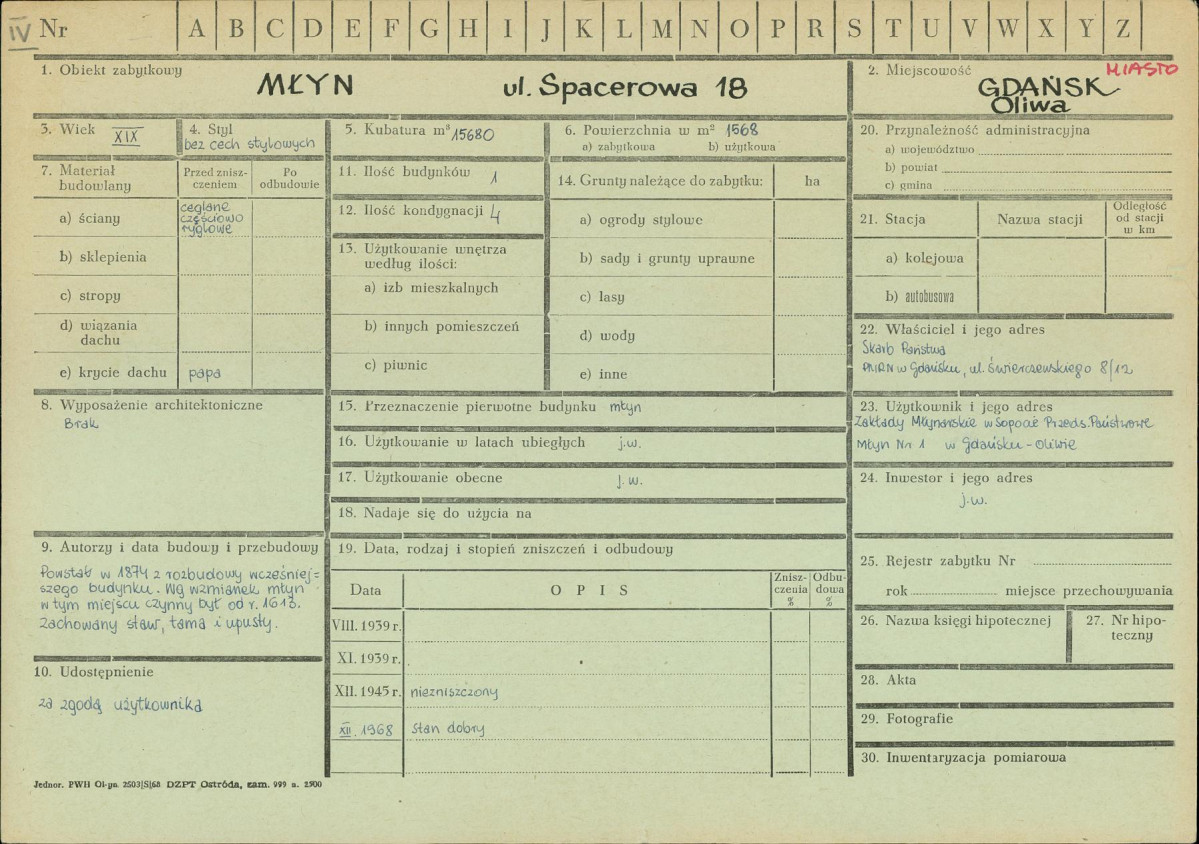 IV Nr A B C D E F G H I J K L M N O P R S T U V W X Y Z
1. Obiekt zabytkowy
MŁYN ul. Spacerowa 18
2. Miejscowość MIASTO
GDAŃSK
Oliwa
3. Wiek XIX
4. Styl
bez cech stylowych
5. Kubatura m³ 15680
6. Powierzchnia w m² 1568
a) zabytkowa b) użytkowa
7. Materiał
budowlany
Przed znisz-
czeniem
Po
odbudowie
a) ściany
ceglane
częściowo
ryglowe
b) sklepienia
c) stropy
d) wiązania
dachu
e) krycie dachu papa
8. Wyposażenie architektoniczne
Brak
9. Autorzy i data budowy i przebudowy
Powstał w 1874 z rozbudowy wcześniej=
szego budynku. Wg wzmianek młyn
w tym miejscu czynny był od r. 1613.
Zachowany staw, tama i upusty.
10. Udostępnienie
za zgodą użytkownika
11. Ilość budynków 1
12. Ilość kondygnacji 4
13. Użytkowanie wnętrza
według ilości:
a) izb mieszkalnych
b) innych pomieszczeń
c) piwnic
14. Grunty należące do zabytku: ha
a) ogrody stylowe
b) sady i grunty uprawne
c) lasy
d) wody
e) inne
15. Przeznaczenie pierwotne budynku młyn
16. Użytkowanie w latach ubiegłych j.w.
17. Użytkowanie obecne j.w.
18. Nadaje się do użycia na
19. Data, rodzaj i stopień zniszczeń i odbudowy
Data O P I S
Znisz-
czenia
%
Odbu-
dowa
%
VIII. 1939 r.
XI. 1939 r.
XII. 1945 r. niezniszczony
XII. 1968 stan dobry
20. Przynależność administracyjna
a) województwo
b) powiat
c) gmina
21. Stacja Nazwa stacji
Odległość
od stacji
w km
a) kolejowa
b) autobusowa
22. Właściciel i jego adres
Skarb Państwa
PMRN w Gdańsku, ul. Świerczewskiego 8/12
23. Użytkownik i jego adres
Zakłady Młynarskie w Sopocie Przeds. Państwowe
Młyn Nr 1 w Gdańsku-Oliwie
24. Inwestor i jego adres
j.w.
25. Rejestr zabytku Nr
rok miejsce przechowywania
26. Nazwa księgi hipotecznej
27. Nr hipo-
teczny
28. Akta
29. Fotografie
30. Inwentaryzacja pomiarowa
Jednor. PWH Ol-yn. 2503|S|68 DZPT Ostróda, zam. 999 n. 2500